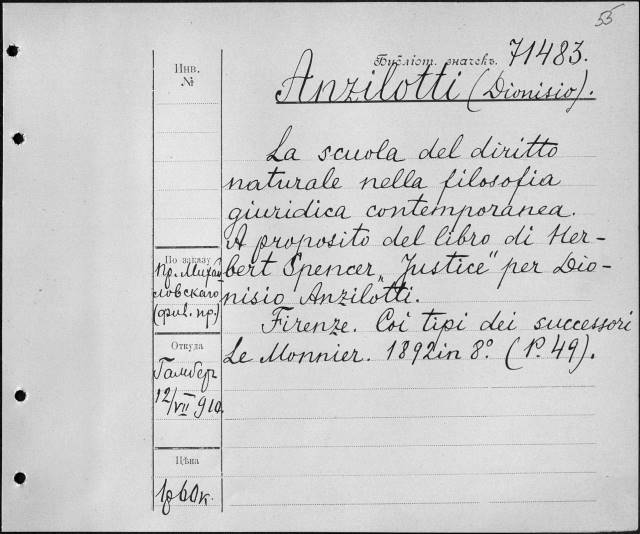 55
Библіот. значекъ. 71483.
Anzilotti (Dionisio).
La scuola del diritto
naturale nella filosofia
giuridica contemporanea.
A proposito del libro di Her-
bert Spencer „Justice" per Dio-
nisio Anzilotti.
Firenze. Coi tipi dei successori
Le Monnier. 1892 in 8º. (P. 49).
Инв.
№
По заказу
пр. Михай
ловскаго
(фил. пр.)
Откуда
Гамбер
12/VII 910.
Цѣна
1р 60к.